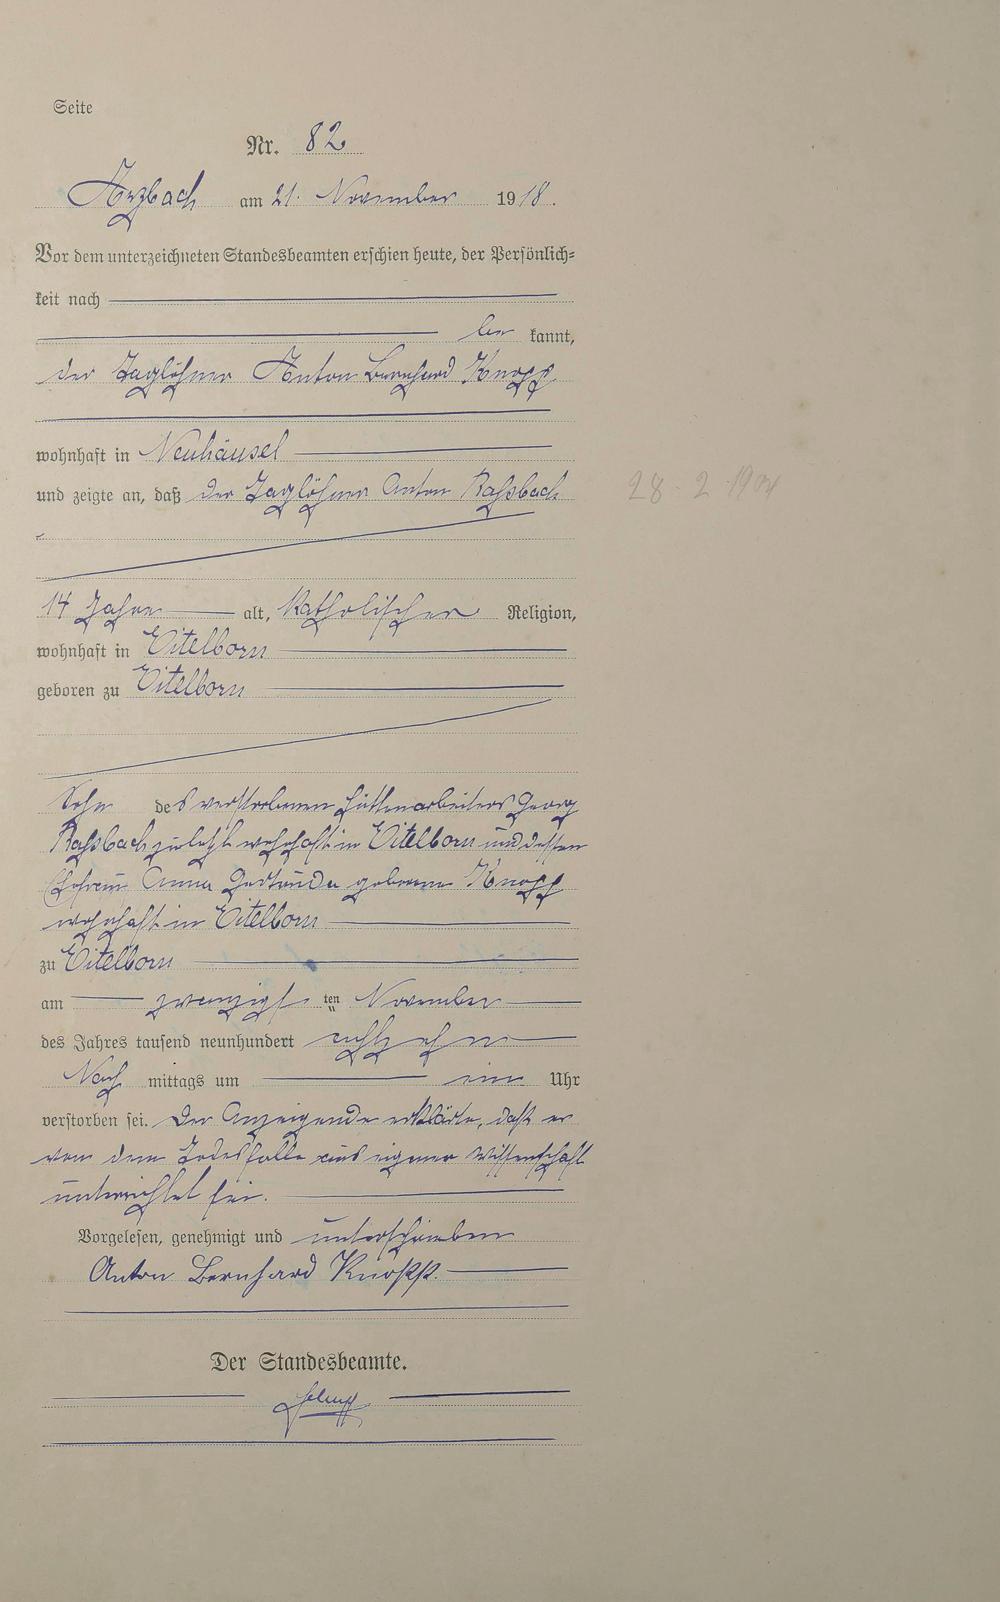 Seite
Nr. 82
Arzbach am 21. November 1918.
Vor dem unterzeichneten Standesbeamten erschien heute, der Persönlich-
keit nach
be kannt,
der Taglöhner Anton Bernhard Knopp
wohnhaft in Neuhäusel
und zeigte an, daß der Taglöhner Anton Raßbach
28-2 1904
14 Jahre alt, katholischer Religion,
wohnhaft in Eitelborn
geboren zu Eitelborn
Sohn des verstorbenen Hüttenarbeiters Georg
Raßbach zuletzt wohnhaft in Eitelborn und dessen
Ehefrau Anna Gertrude geborene Knopp
wohnhaft in Eitelborn
zu Eitelborn
am zwanzigsten November
des Jahres tausend neunhundert achtzehn
Nach mittags um ein Uhr
verstorben sei. Der Anzeigende erklärte, daß er
von dem Todesfalle aus eigener Wissenschaft
unterrichtet sei.
Vorgelesen, genehmigt und unterschrieben
Anton Bernhard Knopp.
Der Standesbeamte.